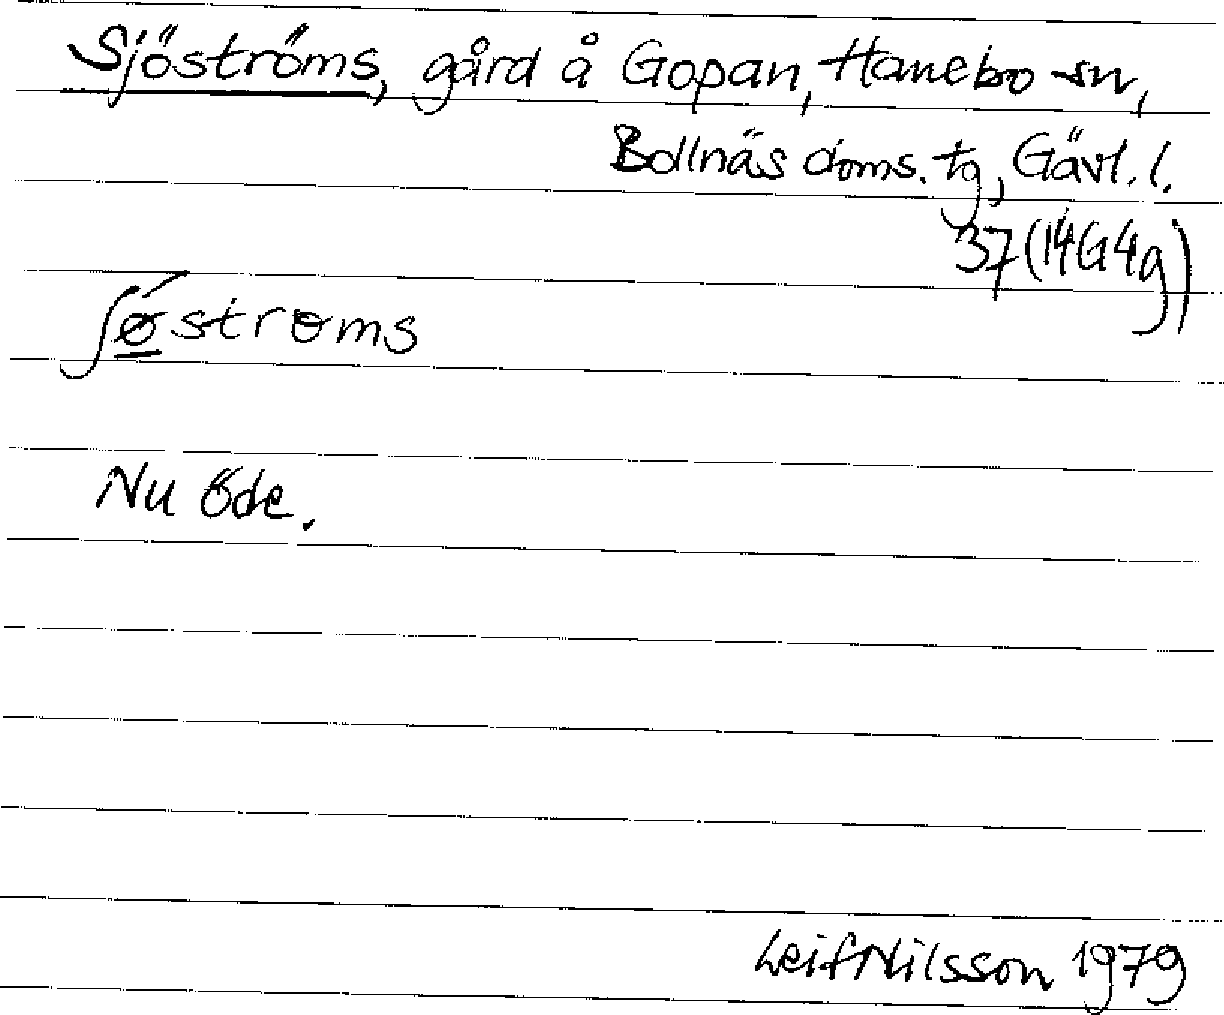 Sjöströms, gård å Gopan, Hanebo sn,
Bollnäs doms. tg, Gävl. l.
37 (14G4g)
ʃǿ̲strøms
Nu öde.
Leif Nilsson 1979